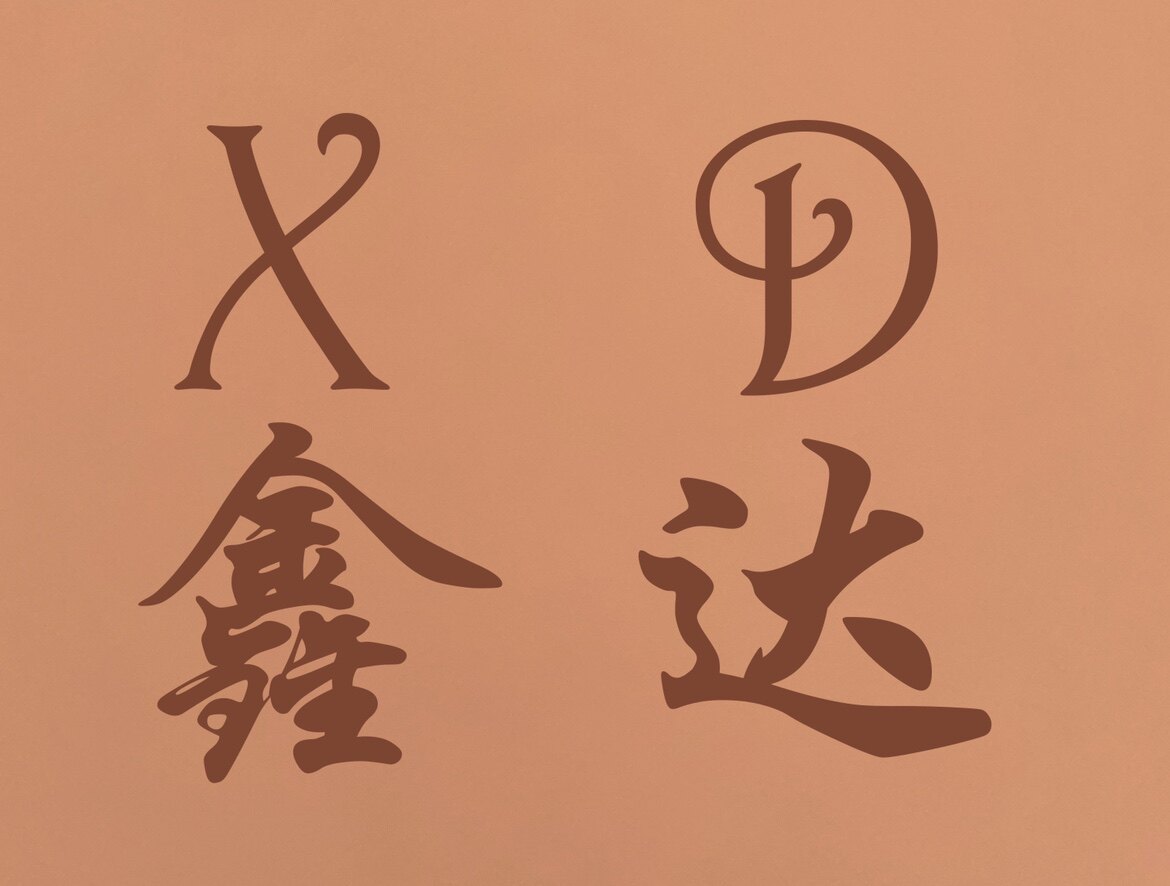 X D
鑫达